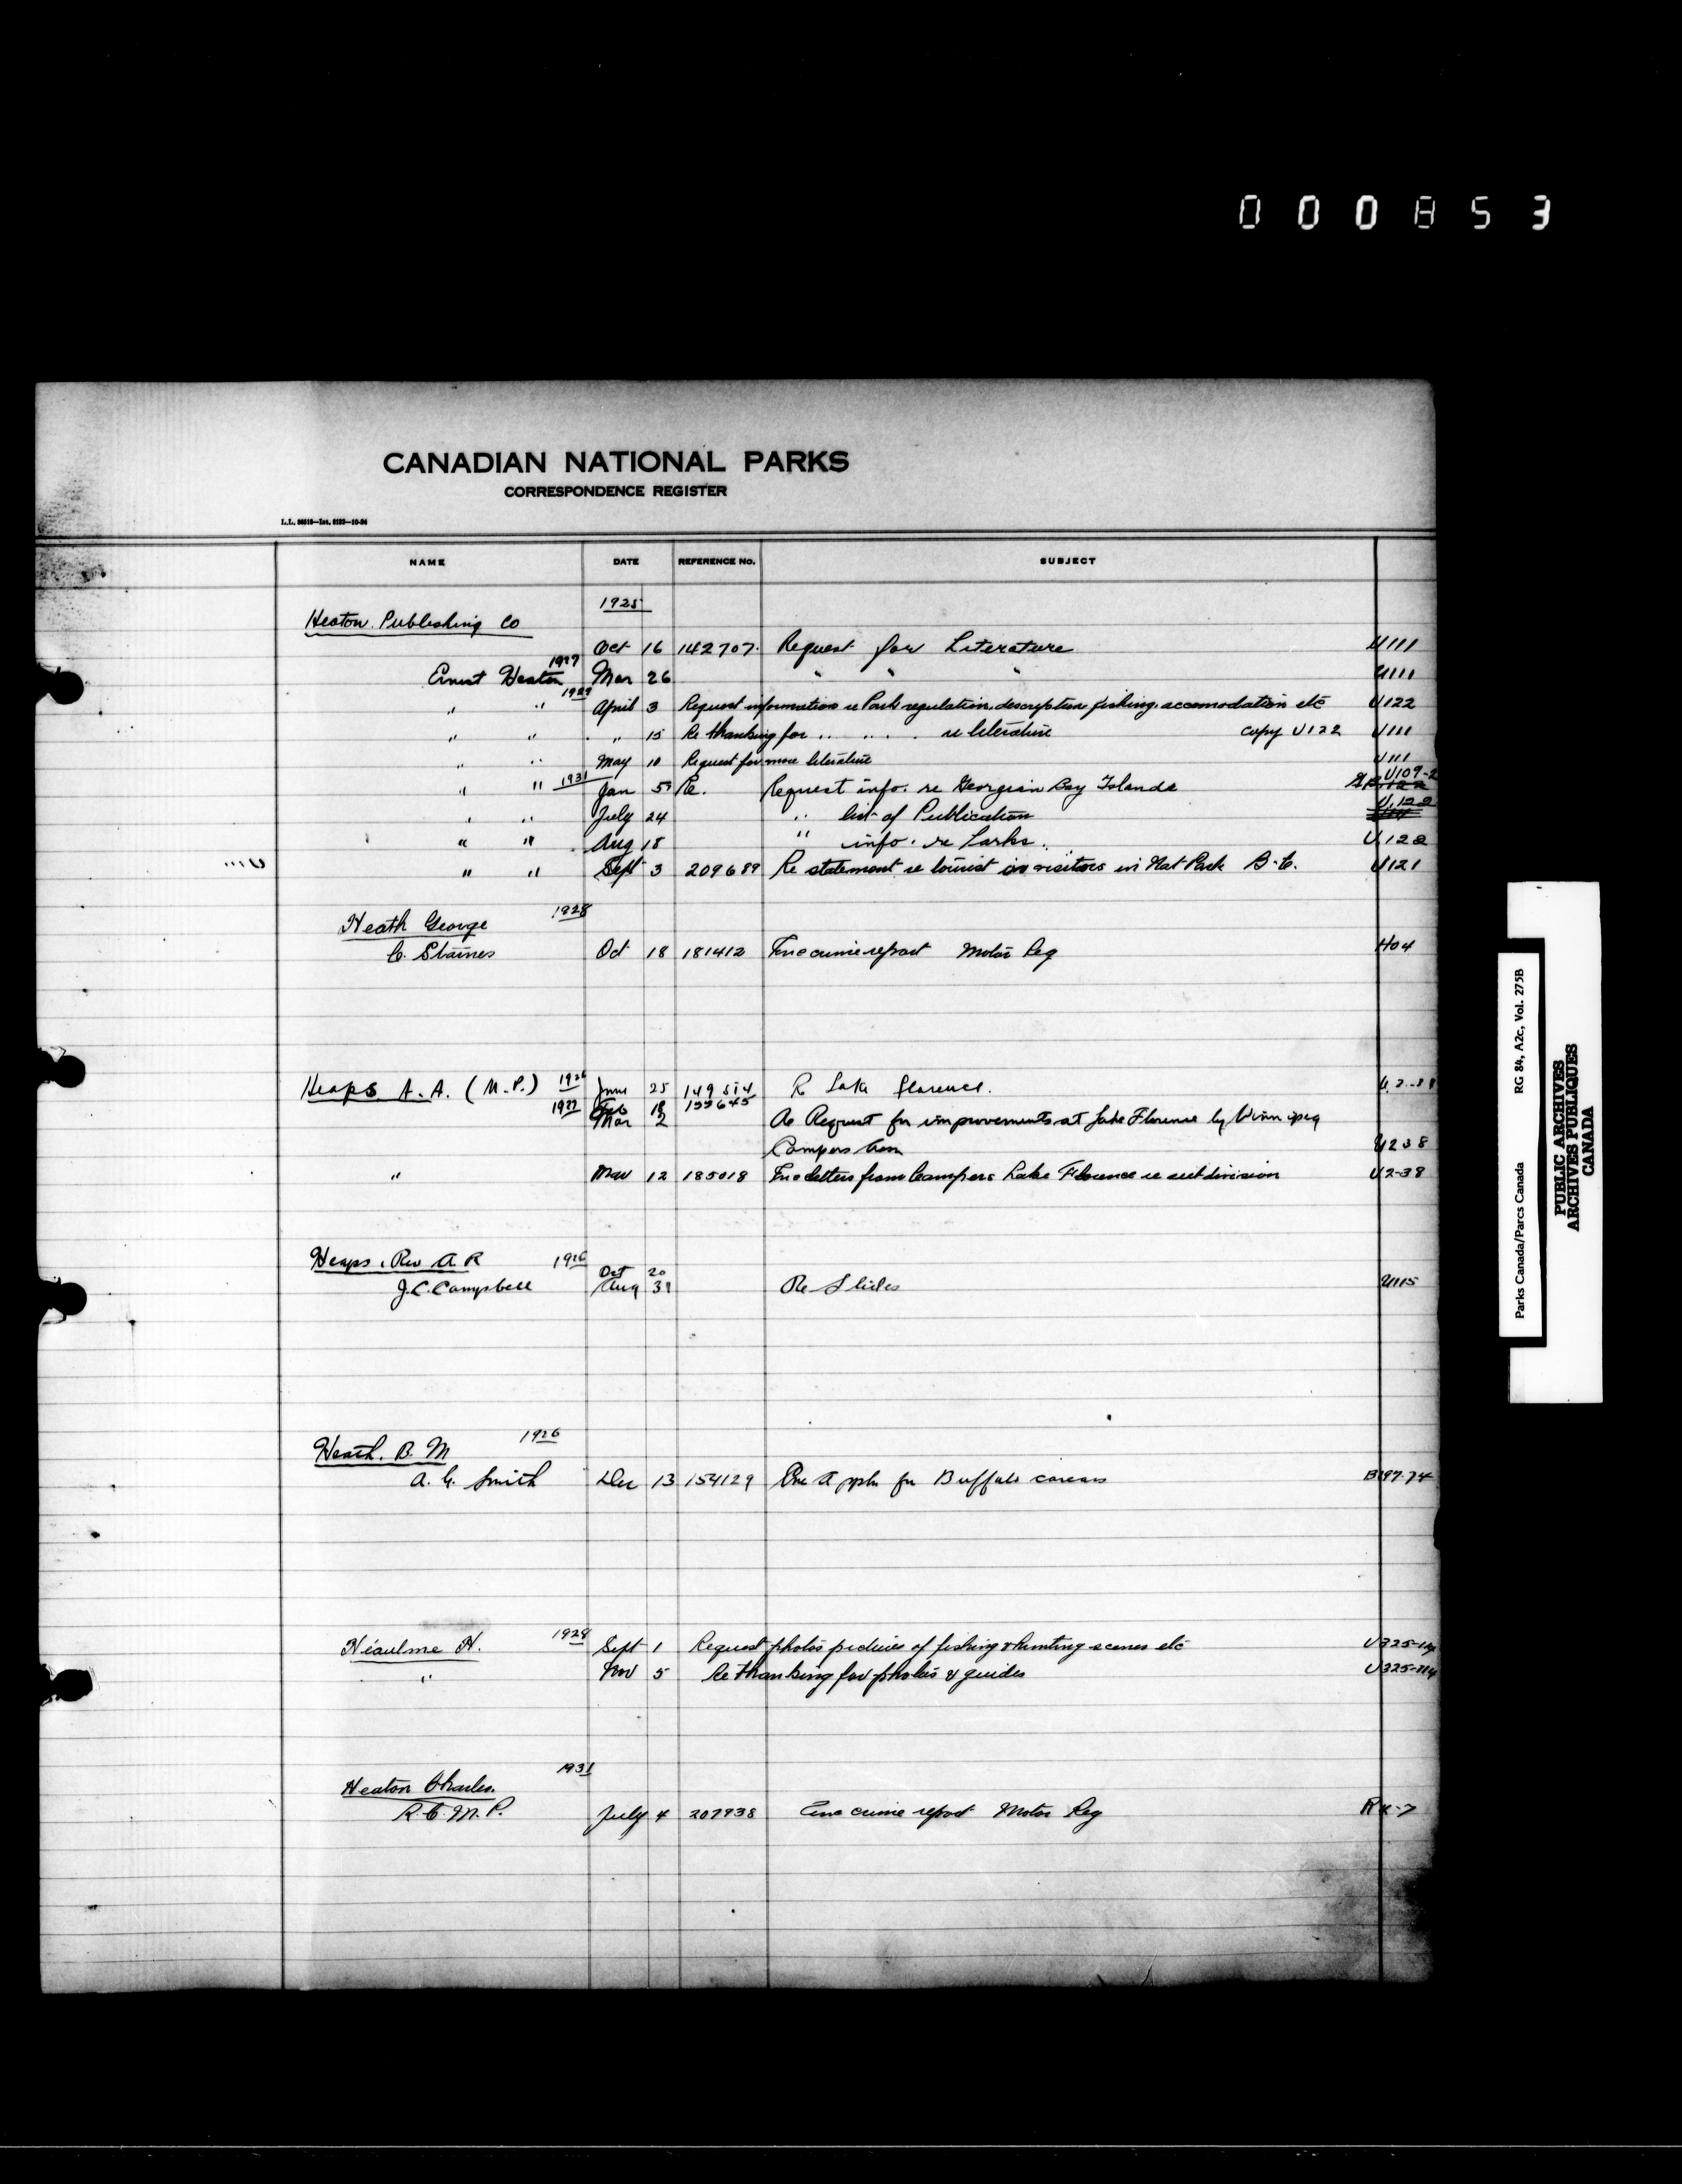 000853
CANADIAN NATIONAL PARKS
CORRESPONDENCE REGISTER
NAME DATE REFERENCE No. SUBJECT
1925
Heaton Publishing Co
Oct 16 142707 Request for Literature U111
Ernest Heaton 1927 Mar 26 " " U111
" " 1929 April 3 Request information re Park regulation, description fishing, accomodation etc U122
" " " 15 Re thanking for " " re literature copy U122 U111
" " May 10 Request for more literature U111
" " 1931 Jan 5 Re. Request info. re Georgian Bay Islands U109-2
" " July 24 " list of Publication U.122
" " Aug 18 " info. re Parks. U.122
" " Sept 3 209689 Re statement re tourist visitors in Nat Park B.C. U121
Heath George 1928
C. Staines Oct 18 181412 Enc crime report Motor Reg H04
Heaps A. A. (M.P.) 1926 June 25 149514 R Lake florence. U2-38
1927 Feb 18 155645
Mar 2 Re Request for improvements at Lake Florence by Winnipeg
Campers Assn U238
" Mar 12 185018 Enc letters from Campers Lake Florence re subdivision U2-38
Heaps, Rev A R 1926 Oct 20
J.C. Campbell Aug 31 Re Slides U115
Heath. B. M 1926
A. G. Smith Dec 13 154129 Enc Appln for Buffalo B197-74
Héaulme H. 1928 Sept 1 Request photos pictures of fishing & hunting scenes etc U325-114
" Nov 5 Re thanking for photos & guides U325-114
Heaton Charles. 1931
R.C.M.P. July 4 207938 Enc crime report Motor Reg R4-7
Parks Canada/Parcs Canada RG 84, A2c, Vol. 275B
PUBLIC ARCHIVES
ARCHIVES PUBLIQUES
CANADA